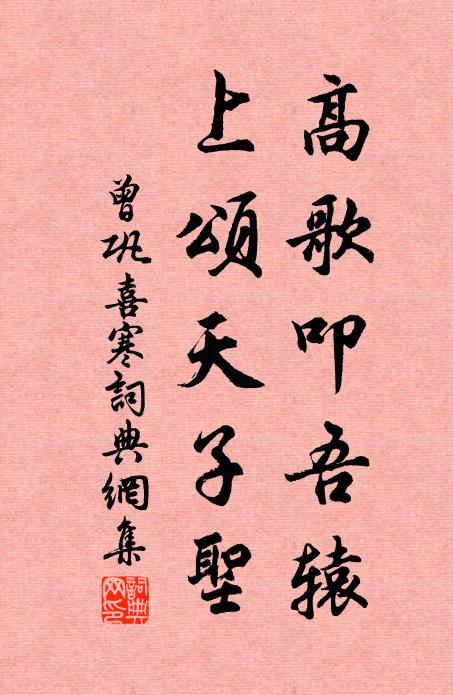 高歌叩吾辕
上頌天子聖
曾巩喜寒詞典網集
詞典网印